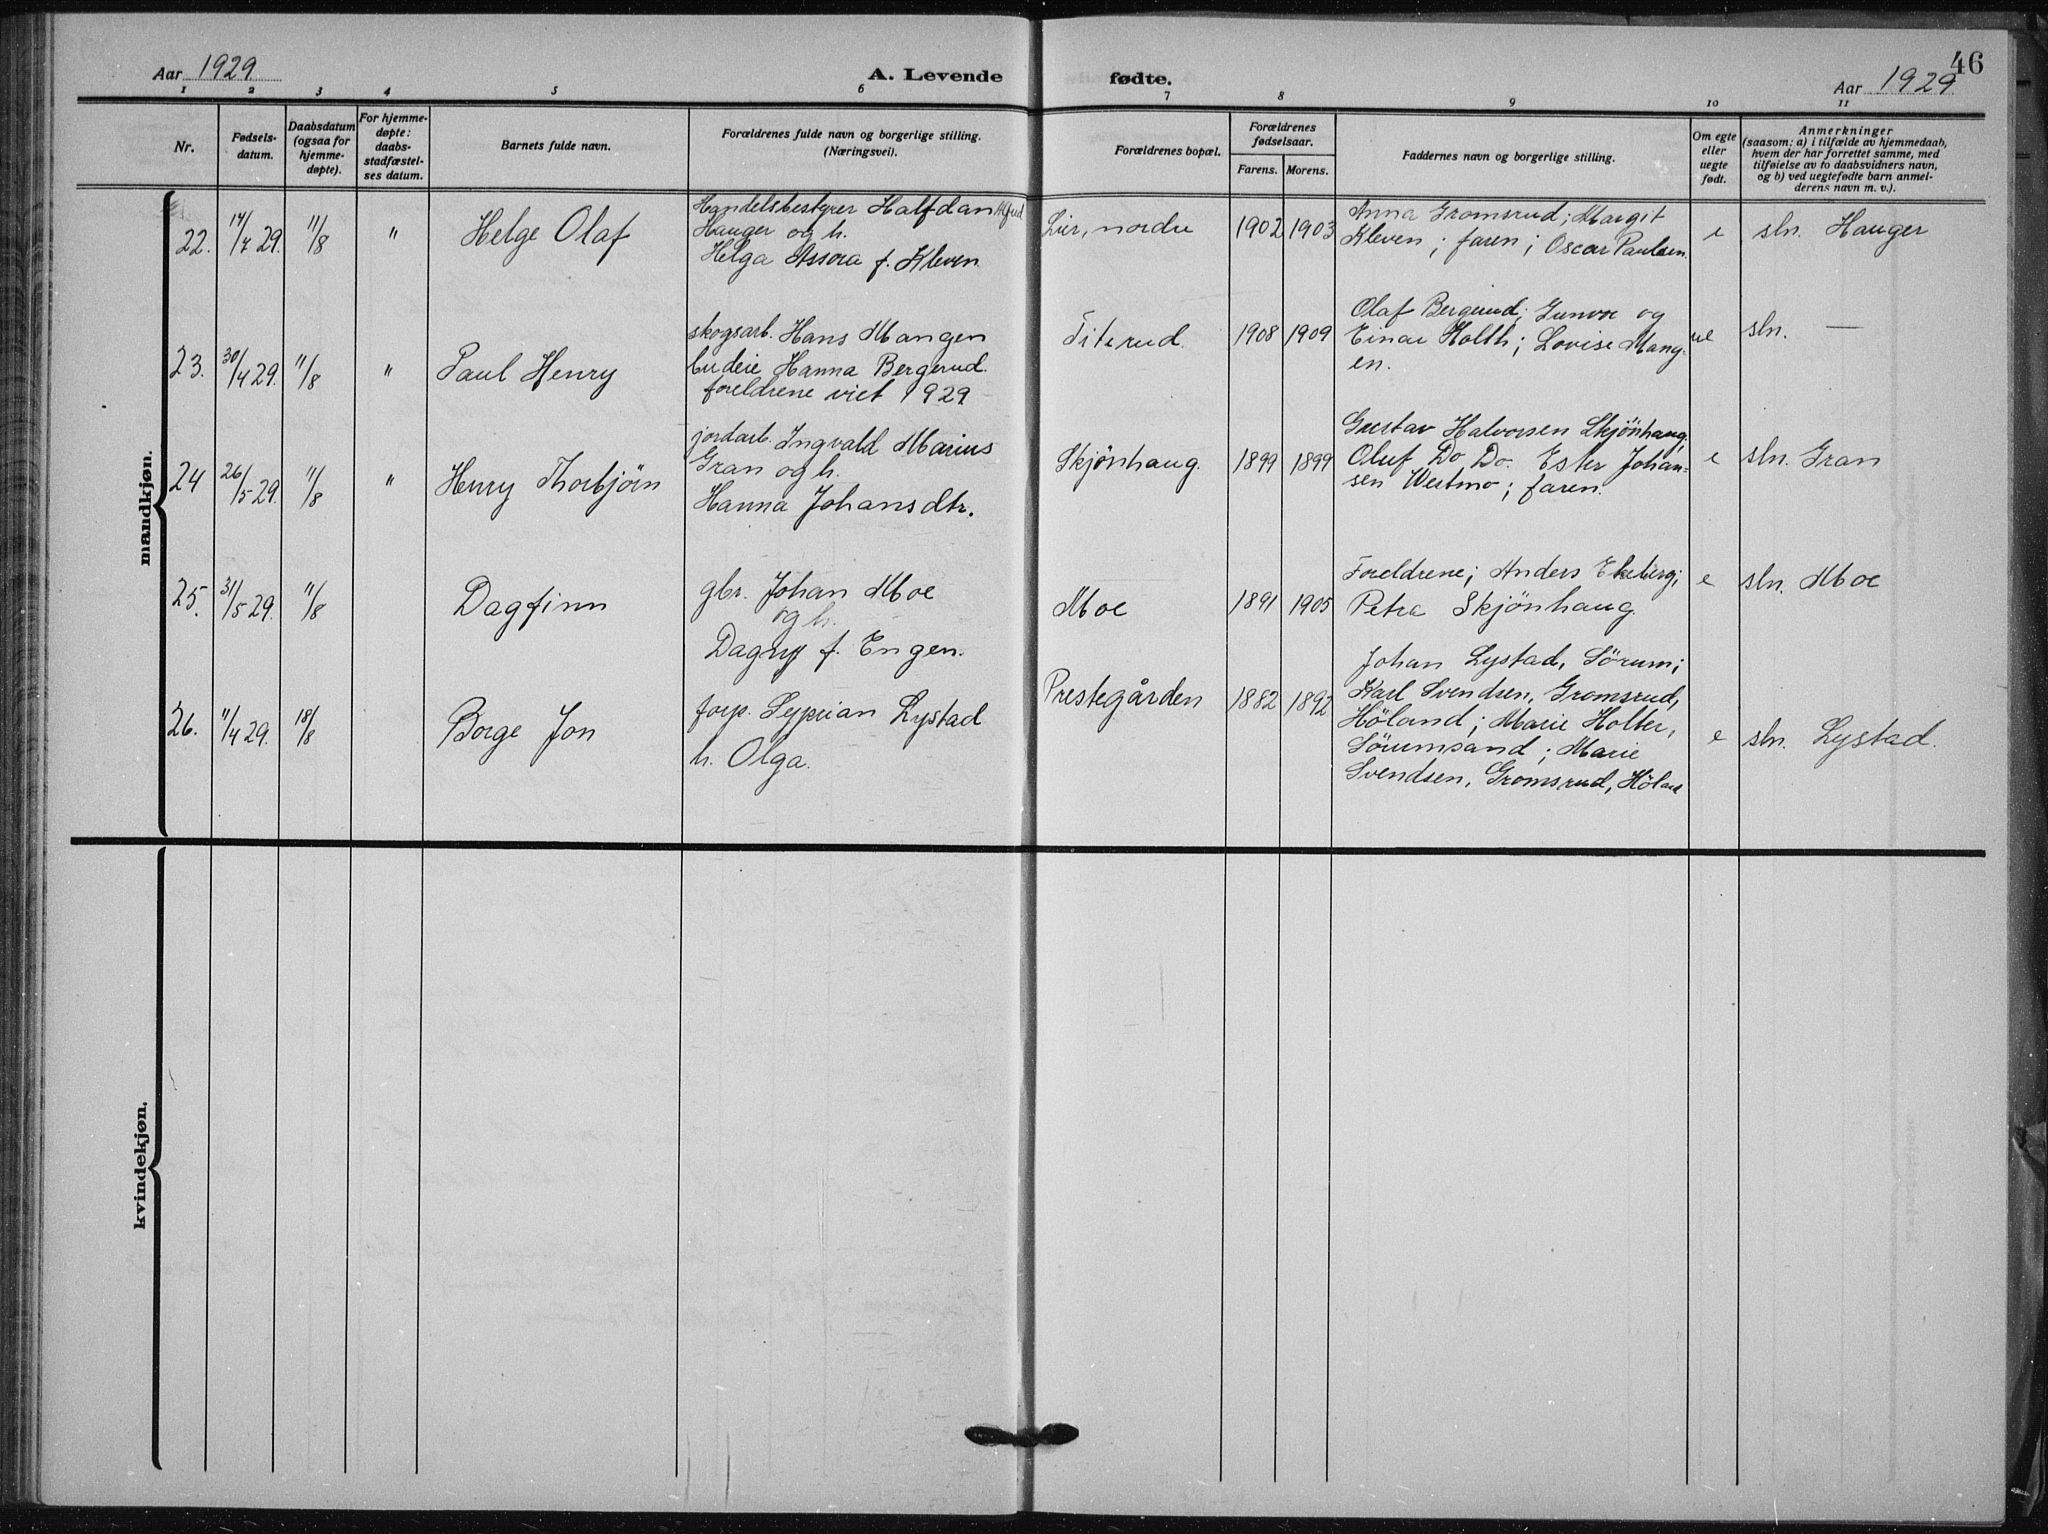 46
Aar 1929
A. Levende
fødte.
Aar 1929
1 2 3 4 5 6 7 8 9 10 11
Nr.
Fødsels-
datum.
Daabsdatum
(ogsaa for
hjemme-
døpte).
For hjemme-
døpte:
daabs-
stadfæstel-
ses datum.
Barnets fulde navn.
Forældrenes fulde navn og borgerlige stilling.
(Næringsvei).
Forældrenes bopæl.
Forældrenes
fødselsaar.
Farens. Morens.
Faddernes navn og borgerlige stilling.
Om egte
eller
uegte
født.
Anmerkninger
(saasom: a) i tilfælde av hjemmedaab,
hvem der har forrettet samme, med
tilføielse av to daabsvidners navn,
og b) ved uegtefødte barn anmel-
derens navn m. v.).
mandkjøn.
22. 17/7 29. 11/8 " Helge Olaf
Handelsbestyrer Halfdan Alfred
Hauger og h.
Helga Assora f. Kleven
Lier, nordre 1902 1903
Anna Gromsrud; Margit
Kleven; faren; Oscar Paulsen
e sln. Hauger
23. 30/4 29. 11/8 " Paul Henry
skogsarb. Hans Mangen
budeie Hanna Bergerud.
foreldrene viet 1929
Titerud. 1908 1909
Olaf Bergerud; Gunvor og
Einar Holth; Lovise Mang-
en.
ue sln. —
24 26/5 29. 11/8 " Henry Thorbjörn
jordarb. Ingvald Marius
Gran og h.
Hanna Johansdtr.
Skjönhaug. 1899 1899
Gustav Halvorsen Skjönhaug,
Oluf Do Do. Ester Johan-
sen Westmo; faren.
e sln. Gran
25. 31/5 29. 11/8 Dagfinn
gbr. Johan Moe
og h.
Dagny f. Engen.
Moe 1891 1905
Foreldrene; Anders Ekeberg;
Petra Skjönhaug.
e sln. Moe
26. 11/4 29. 18/8 Borge Jon
forp. Syprian Lystad
h. Olga.
Prestegården 1882 1892
Johan Lystad, Sörum;
Karl Svendsen, Gromsrud,
Höland; Marie Holter,
Sörumsand; Marie
Svendsen, Gromsrud, Höland
e sln. Lystad.
kvindekjøn.